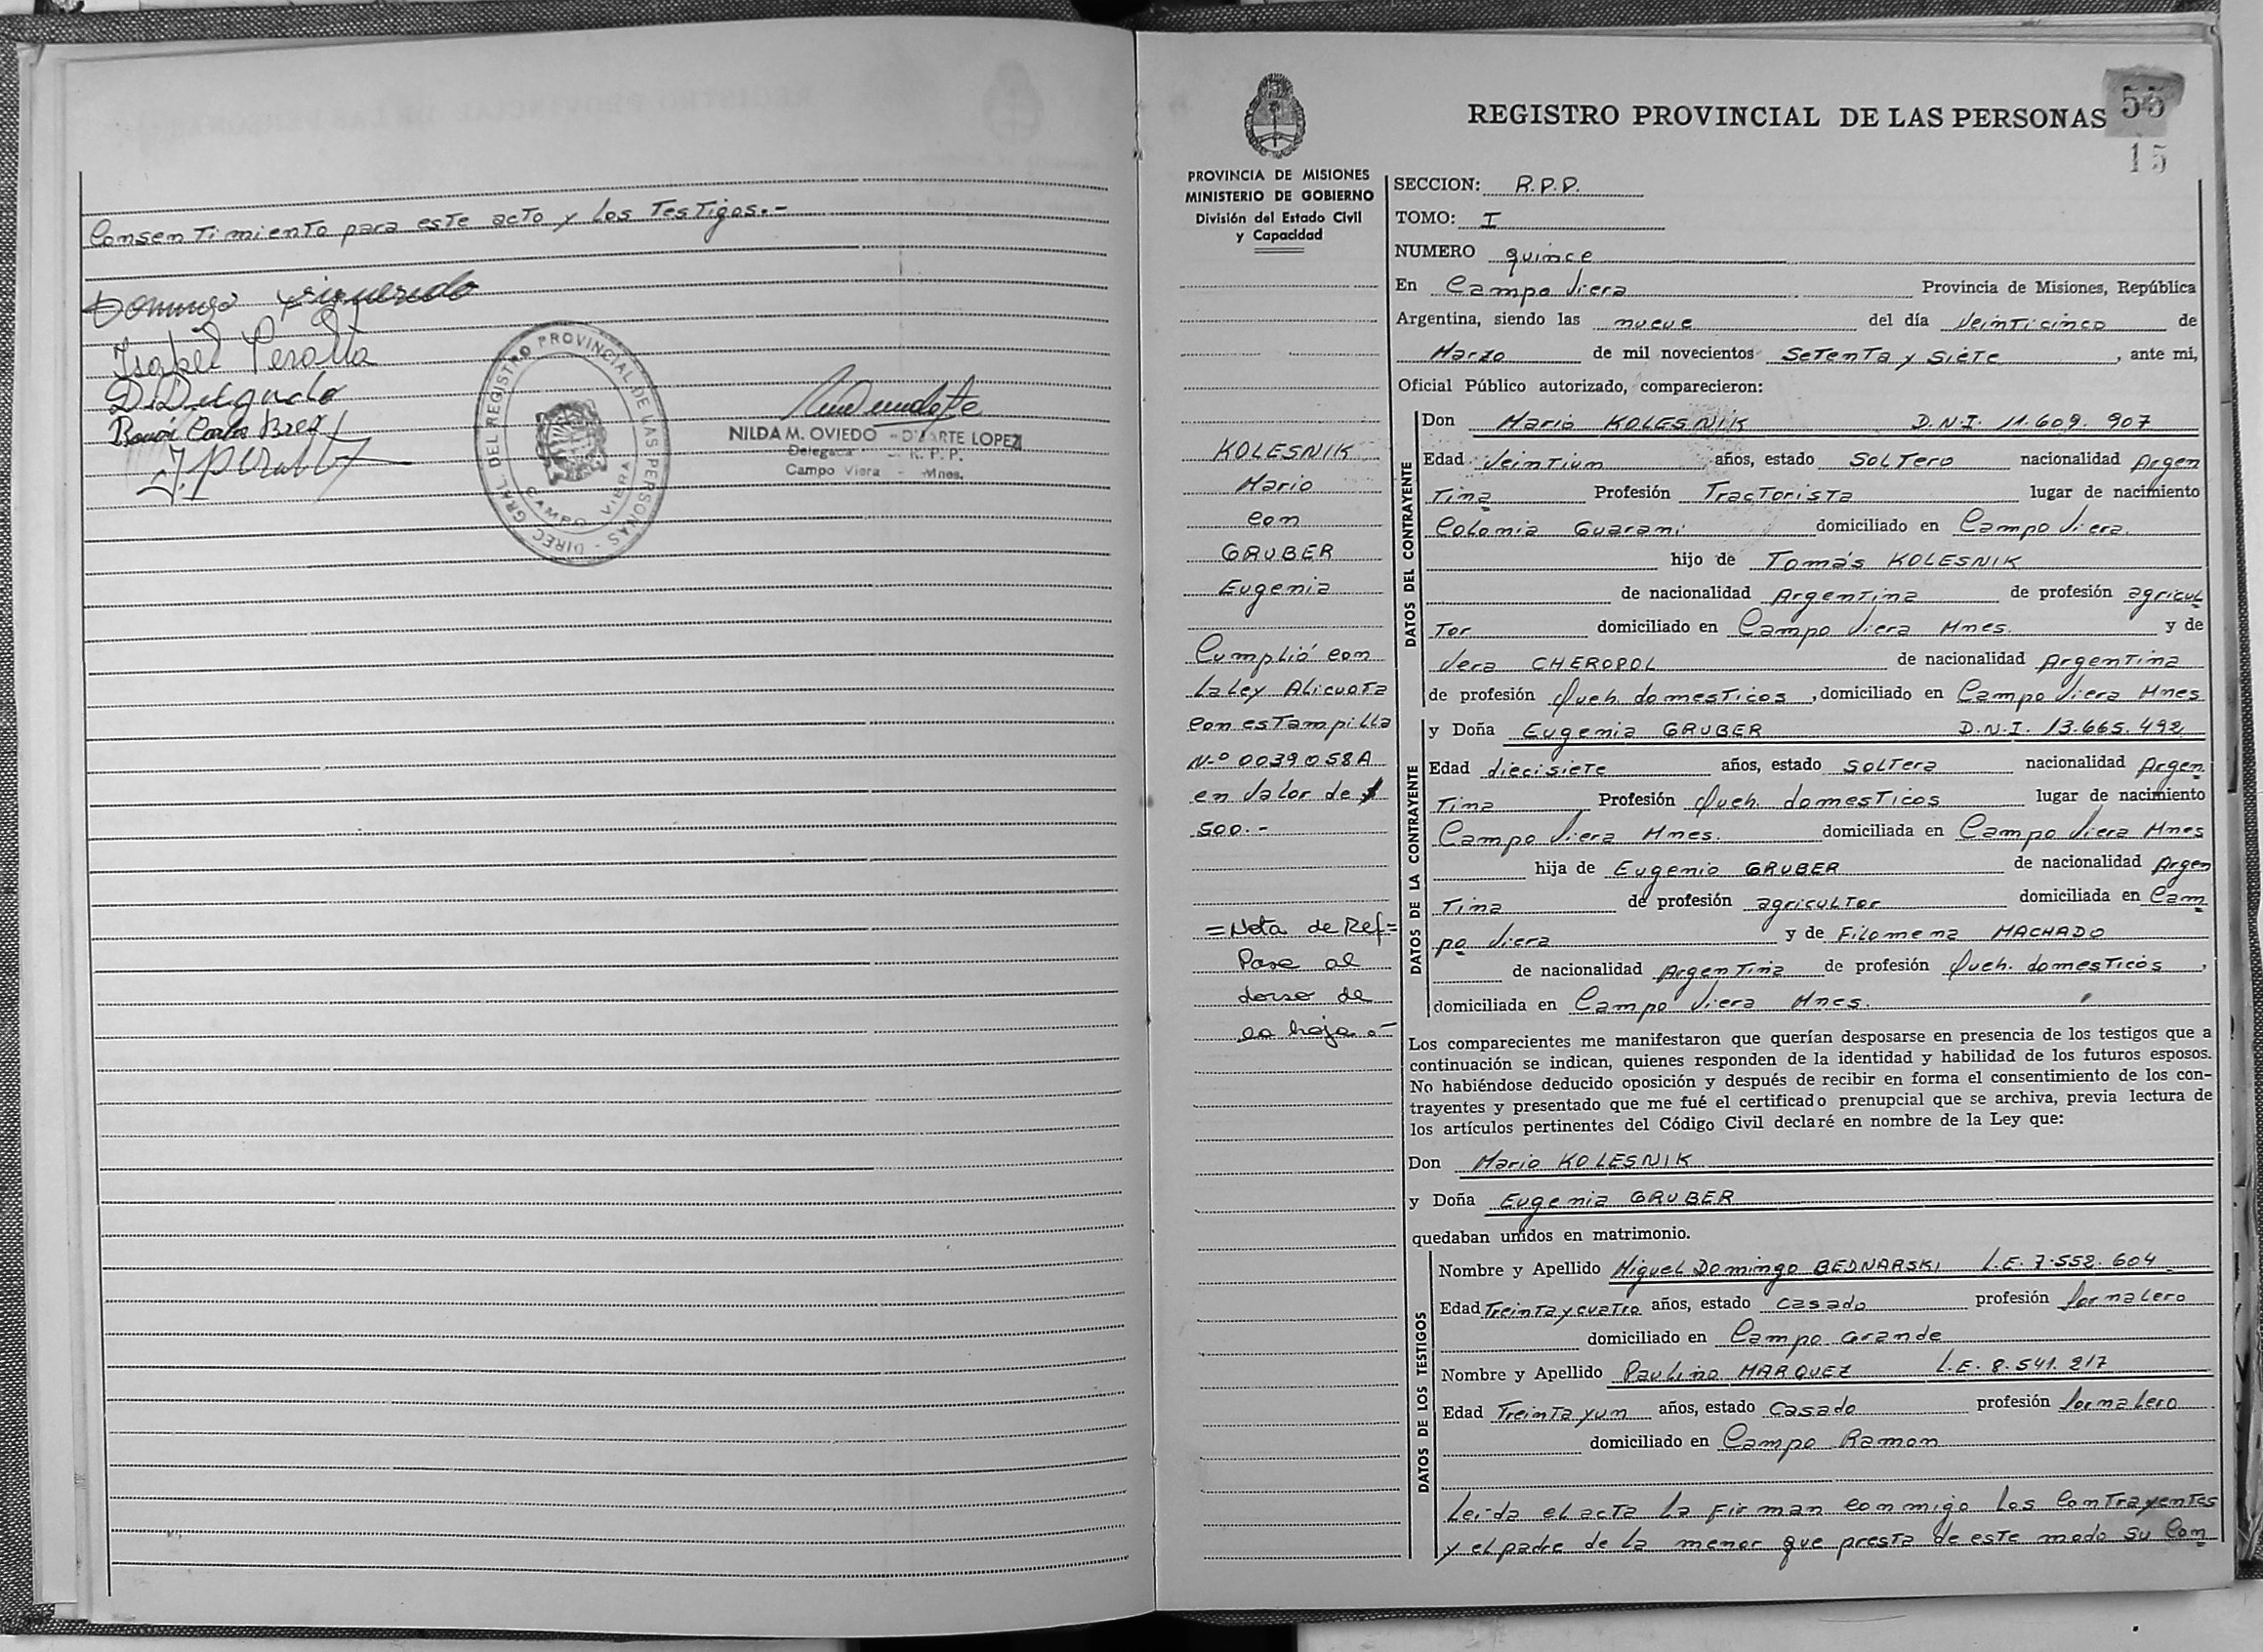 Consentimiento para este acto y los Testigos.-
Domingo Figueredo
Isabel Peralta
D. Delgado
Ramón Carlos Báez
J. Peralta
DIREC. GRAL. DEL REGISTRO PROVINCIAL DE LAS PERSONAS -
CAMPO VIERA
NILDA M. OVIEDO - DUARTE LOPEZ
Delegada R. P. P.
Campo Viera - Mnes.
REGISTRO PROVINCIAL DE LAS PERSONAS 55
15
PROVINCIA DE MISIONES
MINISTERIO DE GOBIERNO
División del Estado Civil
y Capacidad
KOLESNIK
Mario
con
GRUBER
Eugenia
Cumplió con
la Ley Alicuota
con estampilla
N-º 0039058A
en valor de $
500.-
=Nota de Ref=
Pase al
dorso de
la hoja.-
SECCION: R.P.P.
TOMO: I
NUMERO quince
En Campo Viera Provincia de Misiones, República
Argentina, siendo las nueve del día veinticinco de
Marzo de mil novecientos setenta y siete, ante mi,
Oficial Público autorizado, comparecieron:
DATOS DEL CONTRAYENTE
Don Mario KOLESNIK D.N.I. 11.609.907
Edad veintiun años, estado soltero nacionalidad Argen
tina Profesión Tractorista lugar de nacimiento
Colonia Guarani domiciliado en Campo Viera.
hijo de Tomás KOLESNIK
de nacionalidad Argentina de profesión agricul
tor domiciliado en Campo Viera Mnes. y de
Vera CHEROPOL de nacionalidad Argentina
de profesión Queh. domesticos, domiciliado en Campo Viera Mnes
DATOS DE LA CONTRAYENTE
y Doña Eugenia GRUBER D.N.I. 13.665.492
Edad diecisiete años, estado soltera nacionalidad Argen
tina Profesión Queh. domesticos lugar de nacimiento
Campo Viera Mnes. domiciliada en Campo Viera Mnes
hija de Eugenio GRUBER de nacionalidad Argen
tina de profesión agricultor domiciliada en Cam
po Viera y de Filomena MACHADO
de nacionalidad Argentina de profesión Queh. domesticos,
domiciliada en Campo Viera Mnes.
Los comparecientes me manifestaron que querían desposarse en presencia de los testigos que a
continuación se indican, quienes responden de la identidad y habilidad de los futuros esposos.
No habiéndose deducido oposición y después de recibir en forma el consentimiento de los con-
trayentes y presentado que me fué el certificado prenupcial que se archiva, previa lectura de
los artículos pertinentes del Código Civil declaré en nombre de la Ley que:
Don Mario KOLESNIK
y Doña Eugenia GRUBER
quedaban unidos en matrimonio.
DATOS DE LOS TESTIGOS
Nombre y Apellido Miguel Domingo BEDNARSKI L.E. 7.552.604
Edad Treinta y cuatro años, estado casado profesión Jornalero
domiciliado en Campo Grande
Nombre y Apellido Paulino MARQUEZ L.E. 8.541.217
Edad Treinta y un años, estado casado profesión Jornalero
domiciliado en Campo Ramon
Leida el acta la firman conmigo los contrayentes
y el padre de la menor que presta de este modo su con